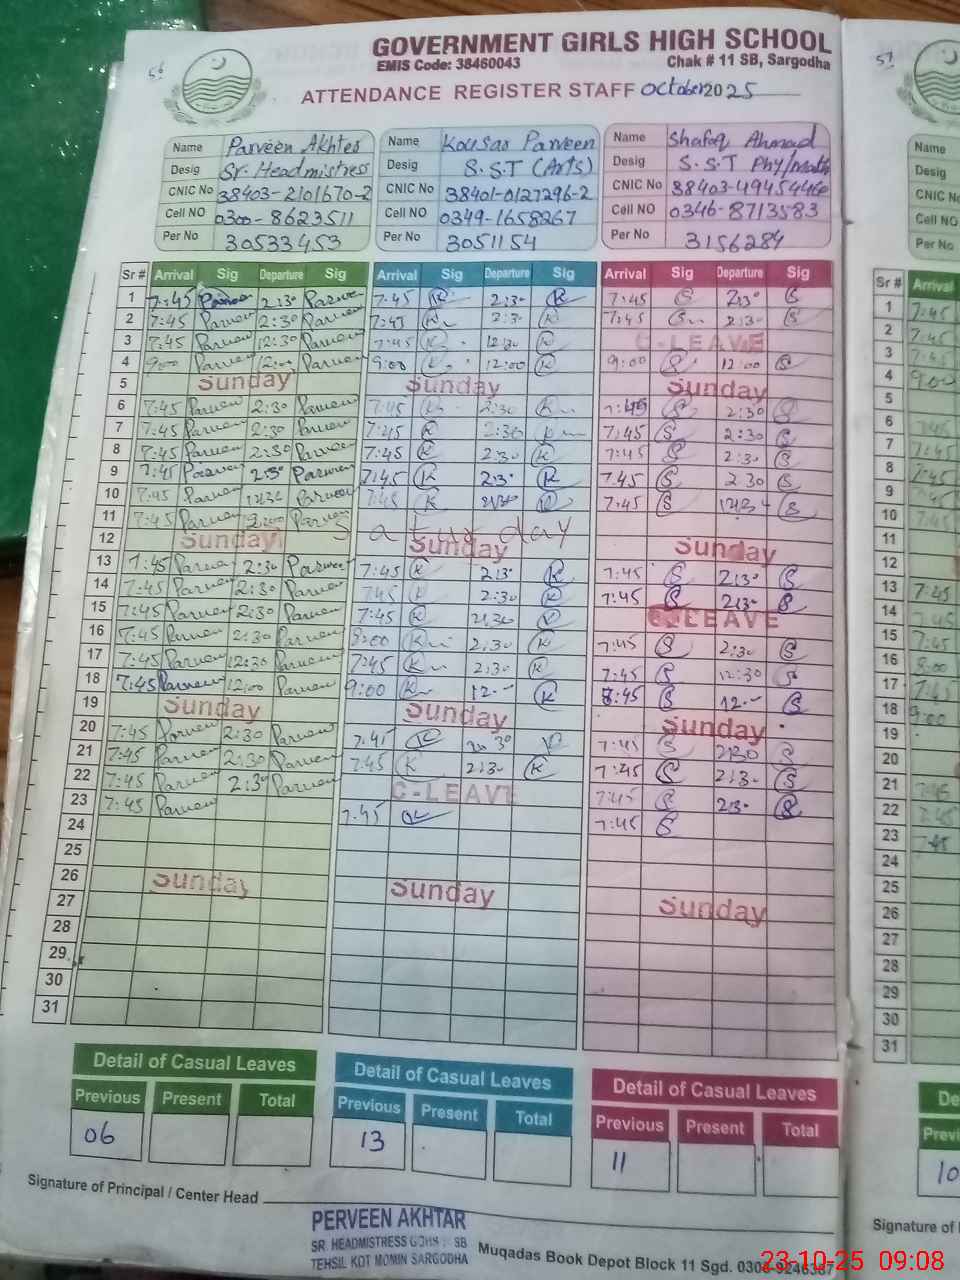 56
GOVERNMENT GIRLS HIGH SCHOOL
EMIS Code: 38460043 Chak # 11 SB, Sargodha
ATTENDANCE REGISTER STAFF October 2025
57
Name Parveen Akhter Name Kousar Parveen Name Shafaq Ahmad
Desig Sr. Headmistress Desig S.S.T (Arts) Desig S.S.T Phy/Math
CNIC No 38403-2101670-2 CNIC No 38401-0127296-2 CNIC No 38403-4945446
Cell NO 0300-8623511 Cell NO 0349-1658267 Cell NO 0346-8713583
Per No 30533453 Per No 3051154 Per No 3156284
Name
Desig
CNIC No
Cell NO
Per No
Sr # Arrival Sig Departure Sig Arrival Sig Departure Sig Arrival Sig Departure Sig Sr # Arrival
1 7:45 Parveen 2:30 Parveen 7:45 K 2:30 K 7:45 S 2:30 S
2 7:45 Parveen 2:30 Parveen 7:45 K 2:30 K 7:45 S 2:30 S
3 7:45 Parveen 12:30 Parveen 7:45 K 12:30 K C-LEAVE
4 9:00 Parveen 12:00 Parveen 9:00 K 12:00 K 9:00 S 12:00 S
5 Sunday Sunday Sunday
6 7:45 Parveen 2:30 Parveen 7:45 K 2:30 K 7:45 S 2:30 S
7 7:45 Parveen 2:30 Parveen 7:45 K 2:30 K 7:45 S 2:30 S
8 7:45 Parveen 2:30 Parveen 7:45 K 2:30 K 7:45 S 2:30 S
9 7:45 Parveen 2:30 Parveen 7:45 K 2:30 K 7:45 S 2:30 S
10 7:45 Parveen Parveen 7:45 K K 7:45 S S
11 7:45 Parveen Parveen Saturday
12 Sunday Sunday Sunday
13 7:45 Parveen 2:30 Parveen 7:45 K 2:30 K 7:45 S 2:30 S
14 7:45 Parveen 2:30 Parveen 7:45 K 2:30 K 7:45 S 2:30 S
15 7:45 Parveen 2:30 Parveen 7:45 K 2:30 K C-LEAVE
16 7:45 Parveen 2:30 Parveen 8:00 K 2:30 K 7:45 S 2:30 S
17 7:45 Parveen 12:30 Parveen 7:45 K 2:30 K 7:45 S 12:30 S
18 7:45 Parveen 12:00 Parveen 9:00 K 12.-- K 8:45 S 12.-- S
19 Sunday Sunday Sunday
20 7:45 Parveen 2:30 Parveen 7:45 K 2:30 K 7:45 S 2:30 S
21 7:45 Parveen 2:30 Parveen 7:45 K 2:30 K 7:45 S 2:30 S
22 7:45 Parveen 2:30 Parveen C-LEAVE 7:45 S 2:30 S
23 7:45 Parveen 7:45 K 7:45 S
24
25
26 Sunday Sunday Sunday
27
28
29
30
31
Detail of Casual Leaves Detail of Casual Leaves Detail of Casual Leaves
Previous Present Total Previous Present Total Previous Present Total
06 13 11 10
Signature of Principal / Center Head
PERVEEN AKHTAR
SR. HEADMISTRESS GGHS SB
TEHSIL KOT MOMIN SARGODHA
Muqadas Book Depot Block 11 Sgd.
Signature of
23-10-25 09:08